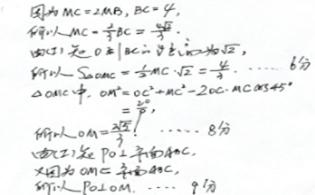 因为MC=2MB, BC=4,
所以 MC=⅔BC=
由(1)知 O到BC的 为√2,
所以 S△OMC=½MC·√2=4/3. …… 6分
△OMC中, OM²=OC²+MC²-2OC·MCcos45°
=20/9,
所以 OM=2√5/3. …… 8分
由(1)知 PO⊥平面ABC,
又因为 OM⊂平面ABC,
所以 PO⊥OM. …… 9分